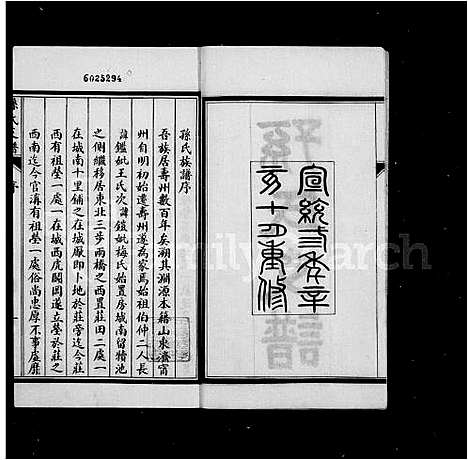 宣統弎年辛
亥十月重修
6025294
孫氏族譜序
吾族居壽州數百年矣溯其淵源本籍山東濟甯
州自明初始遷壽州遂為家焉始祖伯仲二人長
諱鑑妣王氏次諱鎧妣梅氏始置房城南留犢池
之側繼移居東北三步兩橋之西置莊田二處一
在城南十里鋪之在城厰即卜地於莊旁迄今莊
西有祖塋一處一在城西虎關圊遂立塋於莊之
西南迄今官溝有祖塋一處俗尚忠厚不事虛靡